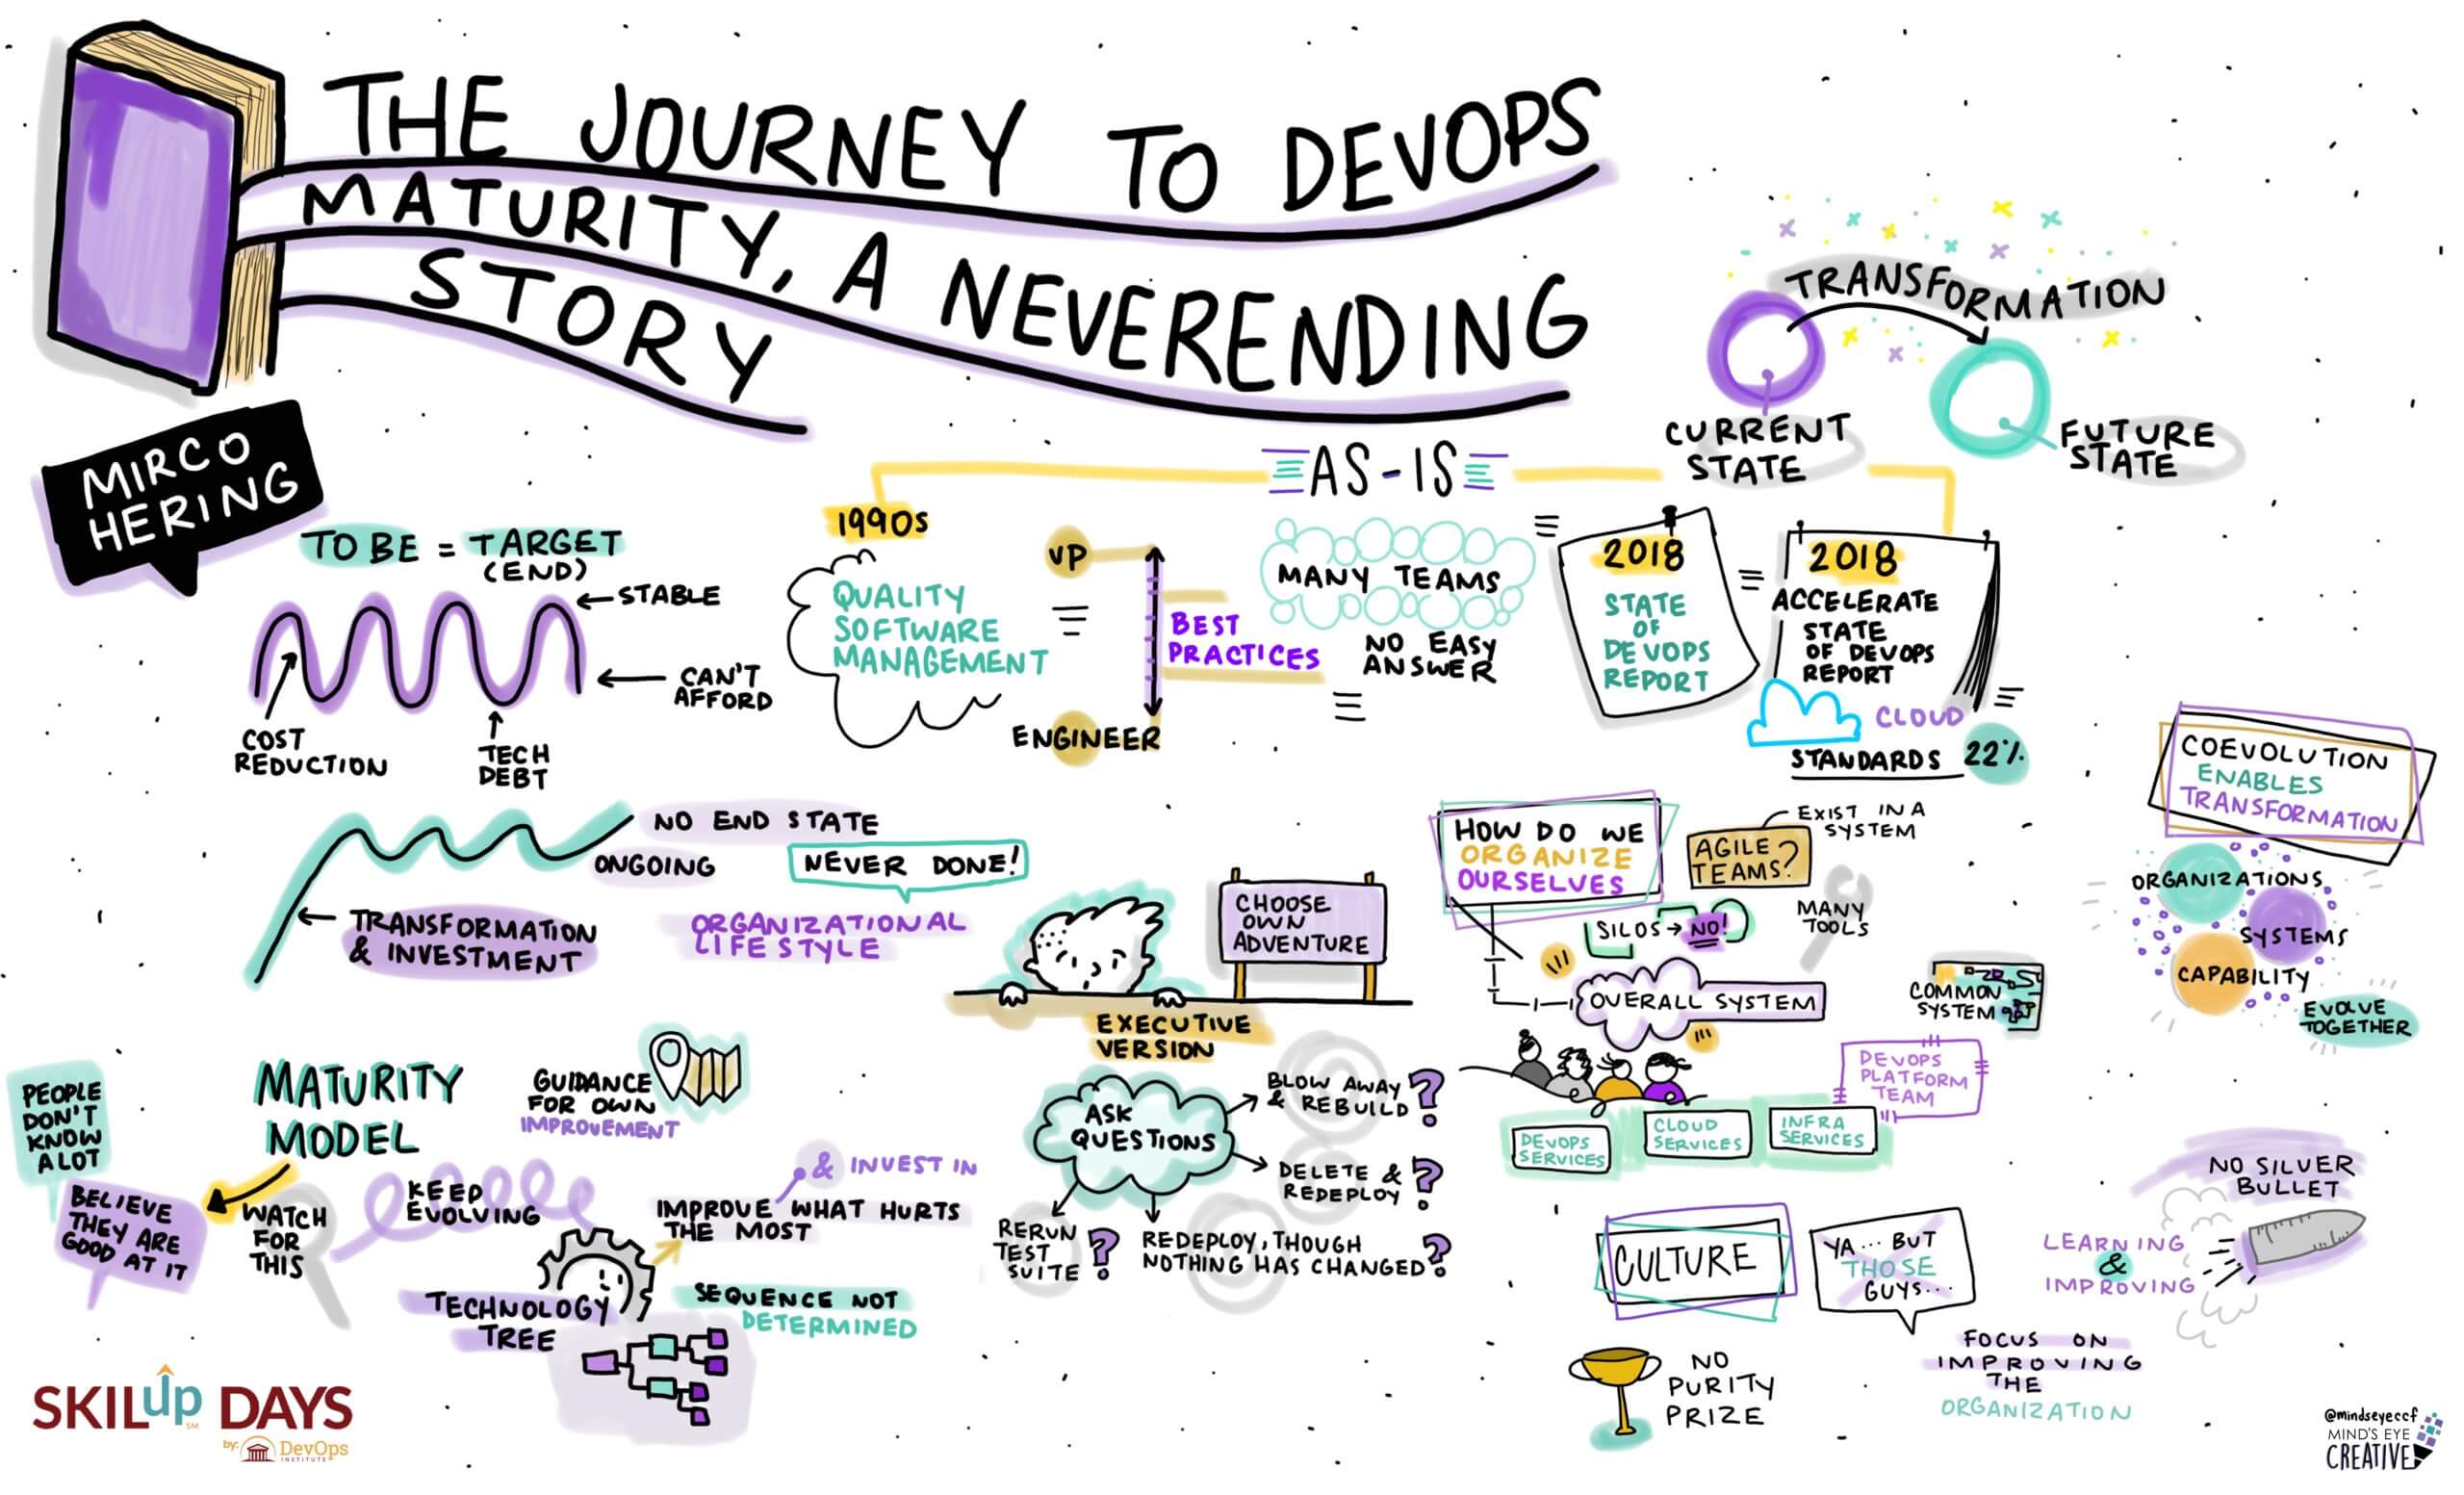 THE JOURNEY TO DEVOPS
MATURITY, A NEVERENDING
STORY
MIRCO
HERING
TRANSFORMATION
CURRENT
STATE
FUTURE
STATE
TO BE = TARGET
(END)
STABLE
CAN'T
AFFORD
COST
REDUCTION
TECH
DEBT
AS-IS
1990s
QUALITY
SOFTWARE
MANAGEMENT
VP
BEST
PRACTICES
ENGINEER
MANY TEAMS
NO EASY
ANSWER
2018
STATE
OF
DEVOPS
REPORT
2018
ACCELERATE
STATE
OF DEVOPS
REPORT
CLOUD
STANDARDS 22%
NO END STATE
ONGOING
NEVER DONE!
TRANSFORMATION
& INVESTMENT
ORGANIZATIONAL
LIFE STYLE
CHOOSE
OWN
ADVENTURE
EXECUTIVE
VERSION
ASK
QUESTIONS
BLOW AWAY
& REBUILD?
DELETE &
REDEPLOY?
RERUN
TEST
SUITE?
REDEPLOY, THOUGH
NOTHING HAS CHANGED?
HOW DO WE
ORGANIZE
OURSELVES
AGILE
TEAMS?
EXIST IN A
SYSTEM
SILOS → NO!
MANY
TOOLS
OVERALL SYSTEM
COMMON
SYSTEM
DEVOPS
PLATFORM
TEAM
DEVOPS
SERVICES
CLOUD
SERVICES
INFRA
SERVICES
COEVOLUTION
ENABLES
TRANSFORMATION
ORGANIZATIONS
SYSTEMS
CAPABILITY
EVOLVE
TOGETHER
PEOPLE
DON'T
KNOW
A LOT
BELIEVE
THEY ARE
GOOD AT IT
MATURITY
MODEL
WATCH
FOR
THIS
GUIDANCE
FOR OWN
IMPROVEMENT
KEEP
EVOLVING
& INVEST IN
IMPROVE WHAT HURTS
THE MOST
TECHNOLOGY
TREE
SEQUENCE NOT
DETERMINED
CULTURE
YA... BUT
THOSE
GUYS...
NO
PURITY
PRIZE
NO SILVER
BULLET
LEARNING
&
IMPROVING
FOCUS ON
IMPROVING
THE
ORGANIZATION
SKILup DAYS
SM
by: DevOps
INSTITUTE
@mindseyeccf
MIND'S EYE
CREATIVE